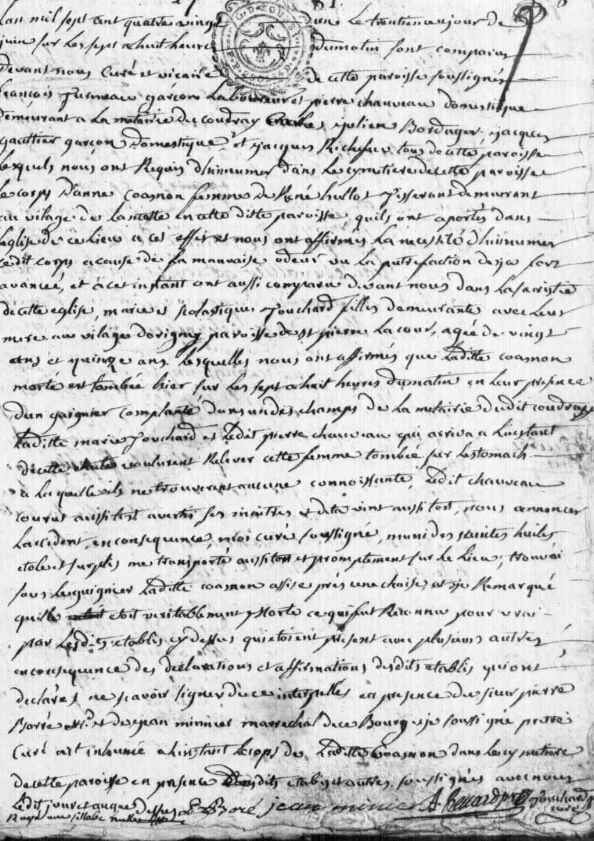 Lan mil sept cent quatre vingt un le trentieme jour de
juin sur les sept a huit heures du matin sont comparus
devant nous Curé et vicaire de cette paroisse soussignés
françois garçon laboureur et pierre chauveau domestique
demeurant a la metairie de Coudray julien Bordager, jacques
gaultier garçon domestique et jacques Richefeu tous de cette paroisse
lesquels nous ont Requis d'hinnumer dans le cymetiere de cette paroisse
le corps d'anne Coasnon femme de René hullot Tisserant demeurant
au vilage de en cette ditte paroisse, quils ont aportés dans
leglise de ce lieu a cet effet et nous ont affirmés la necessité d'hinnumer
ledit corps a cause de sa mauvaise odeur vu la putrefaction deja fort
avancée, et a cet instant ont aussi comparu devant nous dans la sacristie
de cette eglise, marie et scolastique Touchard filles demeurante avec leur
mere au vilage dorigny paroisse de st pierre la cour, agée de vingt
ans et quinze ans, lesquelles nous ont affirmés que laditte coasnon
morte est tombée hier sur les sept a huit heures du matin en leur presence
dun guignier complanté dans un des champs de la metairie dudit coudray
laditte marie Touchard et ledit pierre chauveau qui arriva a linstant
de cette voulurent Relever cette femme tombée sur lestomach
a laquelle ils ne trouverent aucune connoissante, ledit chauveau
courut aussitost avertir ses maitres et de la vint aussitost, nous annoncer
laccident, en consequence, moi curé soussigné, muni des saintes huiles
etole et surplis me transporté aussitost et promptement sur le lieu, trouvai
sous le guignier laditte coasnon assise près une chaise, et je Remarqué
quelle etoit veritablement Morte ce qui fut Reconnu pour vrai
par lesdits etablis cy dessus qui etoient present avec plusieurs autres
en consequence des declarations et affirmations desdits etablis qui ont
declarés ne scavoir signer de ce interpellés en presence du sieur pierre
Boré et de jean minier marrechal de ce Bourg je soussigné pretre
Curé ait inhumé a linstant le cops de laditte Coasnon dans le cymetiere
de cette paroisse en presence desdits etablis et autres, soussignés avec nous
ledit jour et an que dessus P Boré jean minier Touchard
Rayé une sillabe nulle